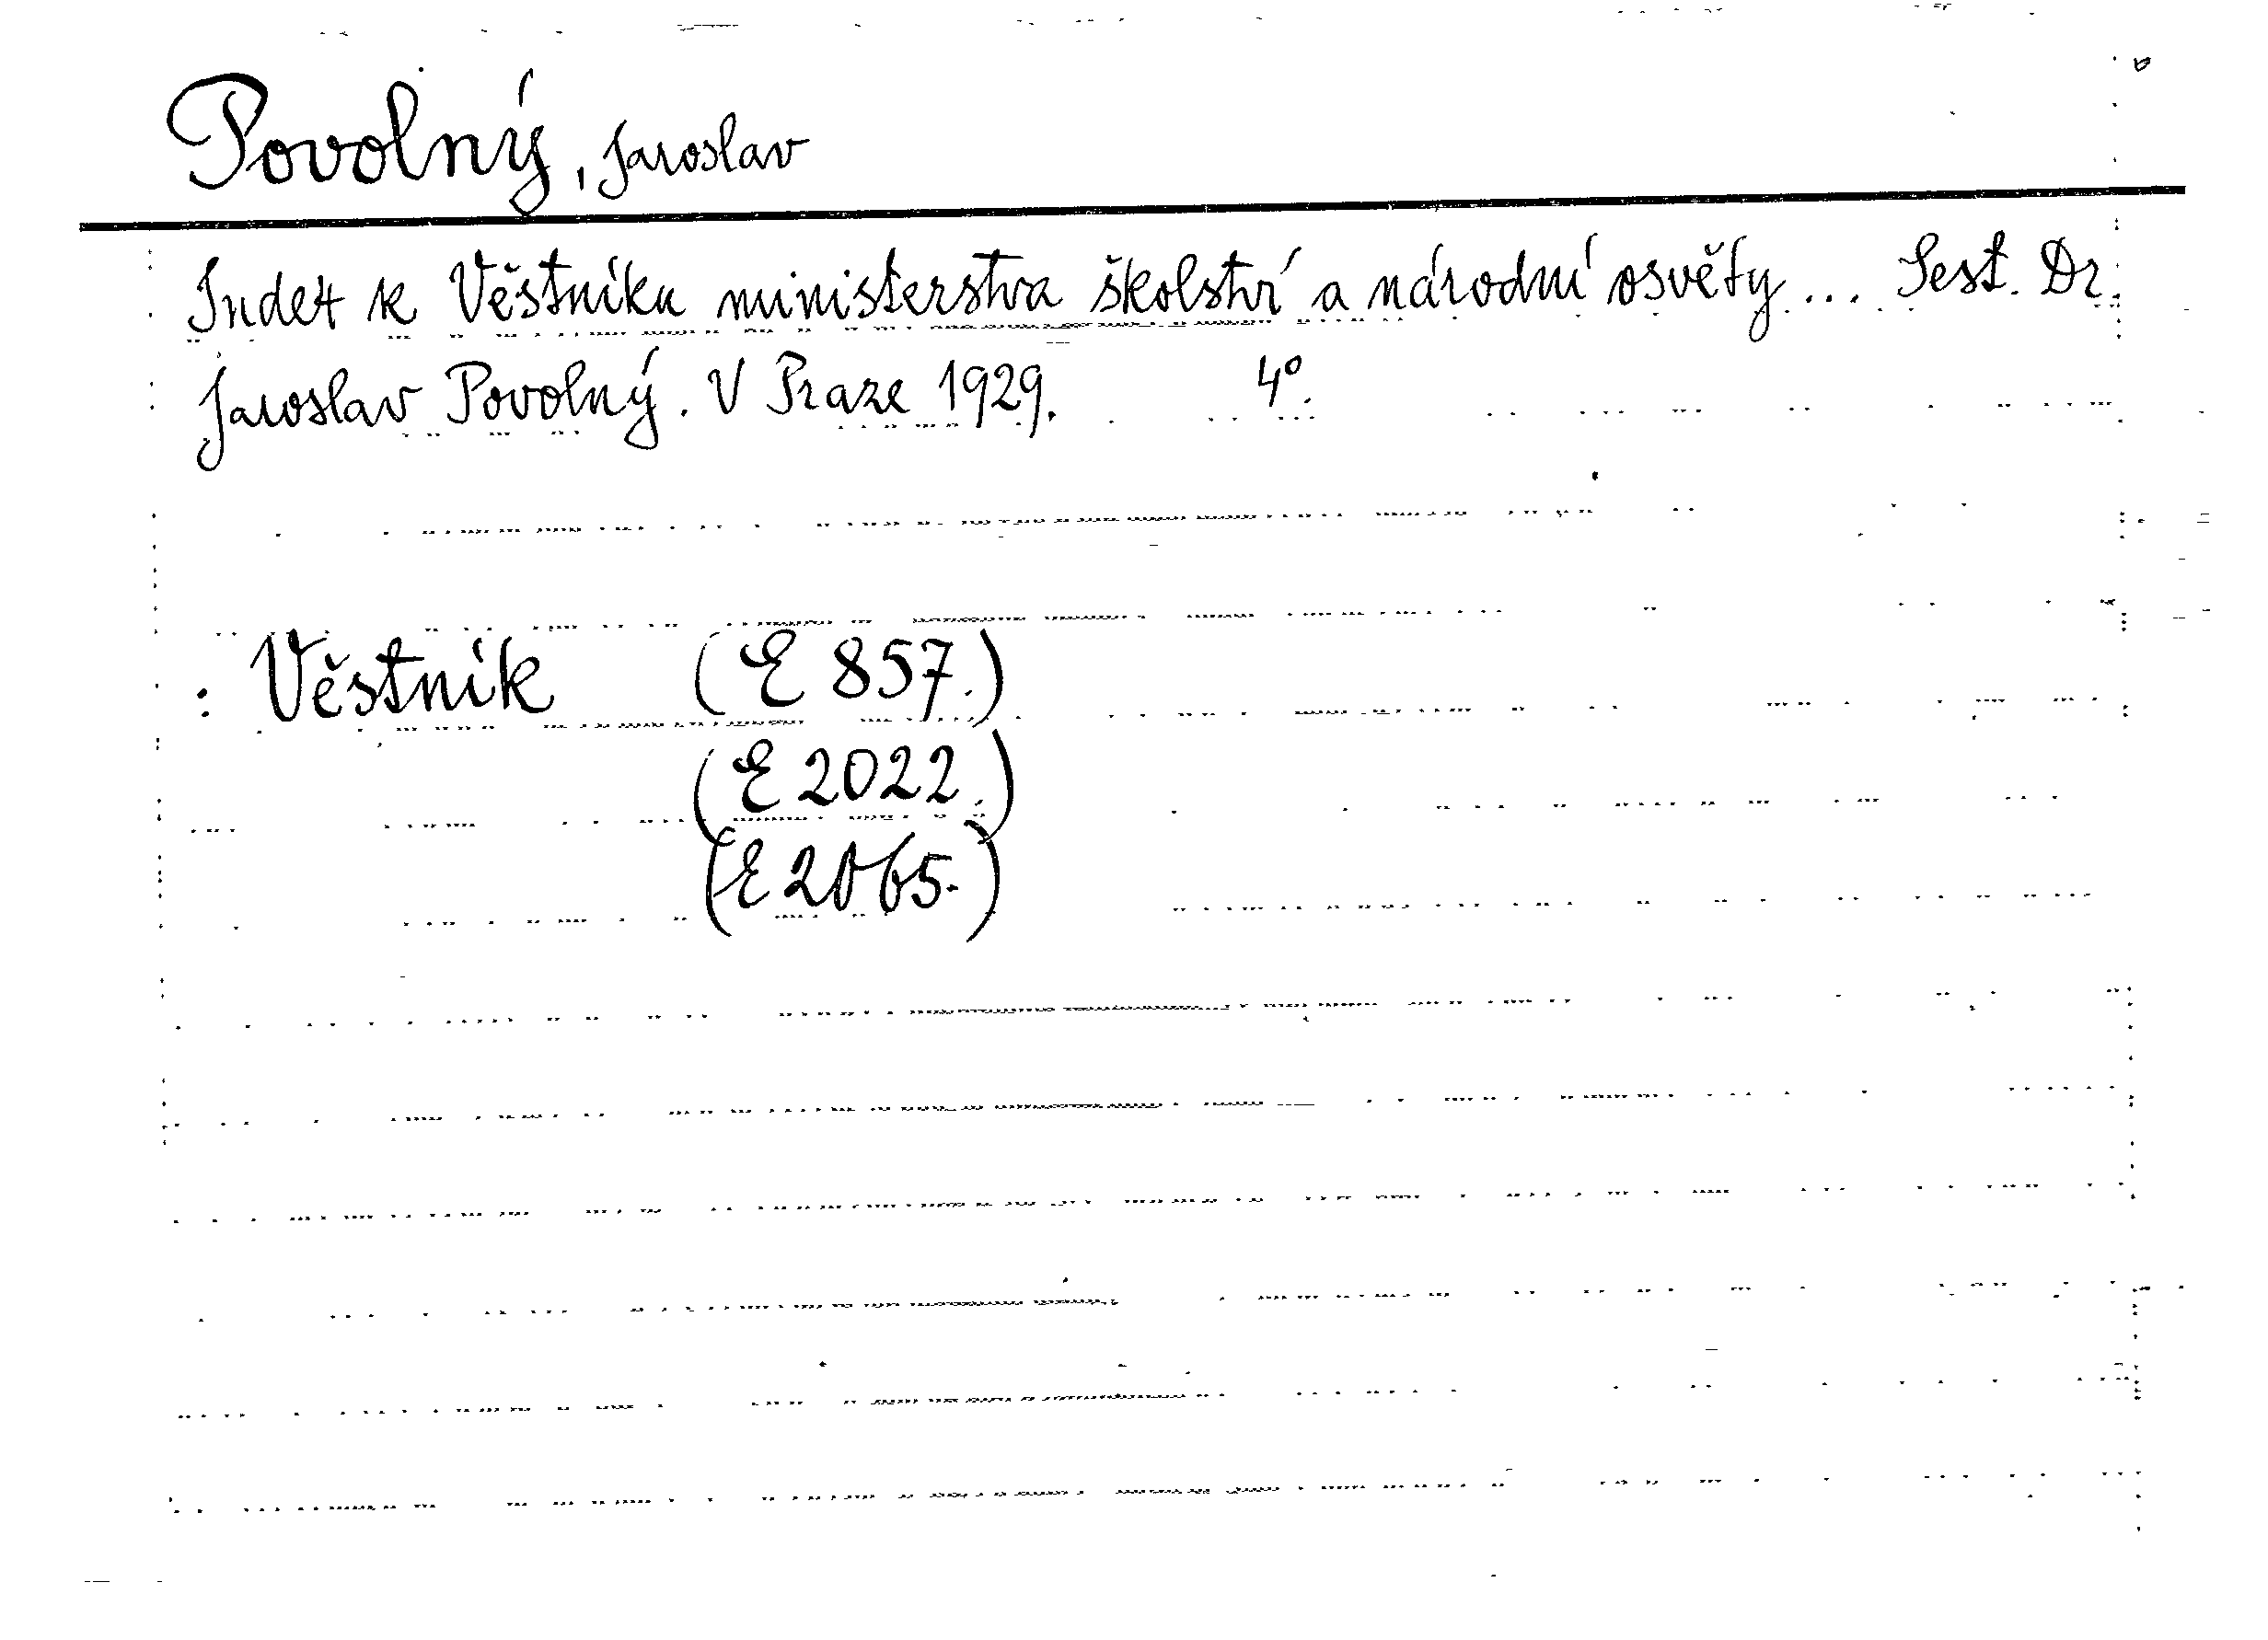 Povolný, Jaroslav
Index k Věstníku ministerstva školství a národní osvěty... Sest. Dr.
Jaroslav Povolný. V Praze 1929. 4°.
: Věstník (E 857.)
(E 2022.)
(E 2065.)